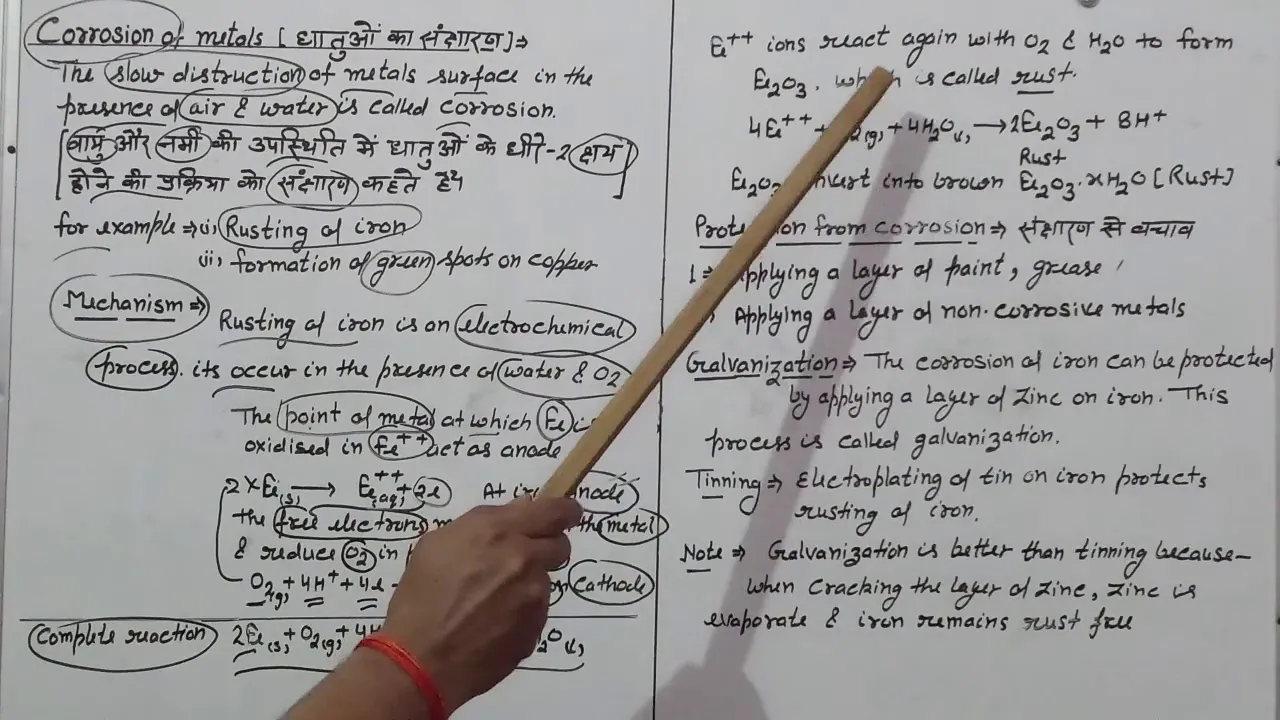 Corrosion of metals [धातुओं का संक्षारण]⇒
The slow distruction of metals surface in the
presence of air & water is called corrosion.
[वायु और नमी की उपस्थिति में धातुओं के धीरे-2 क्षय
होने की प्रक्रिया को संक्षारण कहते हैं]
for example ⇒ (i) Rusting of iron
(ii) formation of green spots on copper
Mechanism ⇒
Rusting of iron is an electrochemical
process. its occur in the presence of water & O2
The point of metal at which Fe
oxidised in Fe++ act as anode
2×Fe(s) ⟶ Fe++(aq) + 2e At anode
the free electrons the metal
& reduce O2 in
O2(g) + 4H+ + 4e cathode
Complete reaction 2Fe(s) + O2(g) + O(l)
Fe++ ions react again with O2 & H2O to form
Fe2O3. which is called rust.
4Fe++ + 2(g) + 4H2O(l) ⟶ 2Fe2O3 + 8H+
Rust
Fe2O3 into brown Fe2O3.xH2O [Rust]
Protection from corrosion ⇒ संक्षारण से बचाव
1⇒ Applying a layer of paint, grease
Applying a layer of non-corrosive metals
Galvanization ⇒ The corrosion of iron can be protected
by applying a layer of zinc on iron. This
process is called galvanization.
Tinning ⇒ Electroplating of tin on iron protects
rusting of iron.
Note ⇒ Galvanization is better than tinning because-
when cracking the layer of zinc, zinc is
evaporate & iron remains rust free